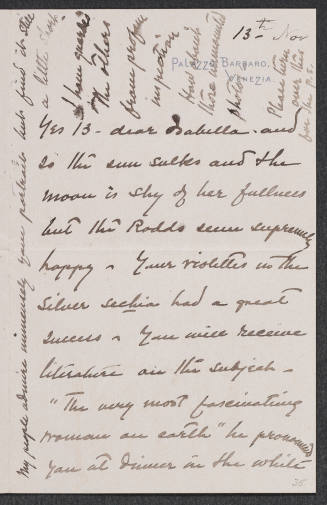 13th Nov
PALAZZO BARBARO,
VENEZIA.
Yes 13 - dear Isabella - and
so the sun sulks and the
moon is shy of her fullness
but the Rodds seem supremely
happy - Your violettes in the
silver secchia had a great
success - You will receive
literature on the subject -
"The very most fascinating
woman on earth" he pronounced
you at dinner in the white
My people admire immensely your portrait but find it
a little
I have guarded
the others
from profane
inspection
Please turn
over this
for the P.S.
35